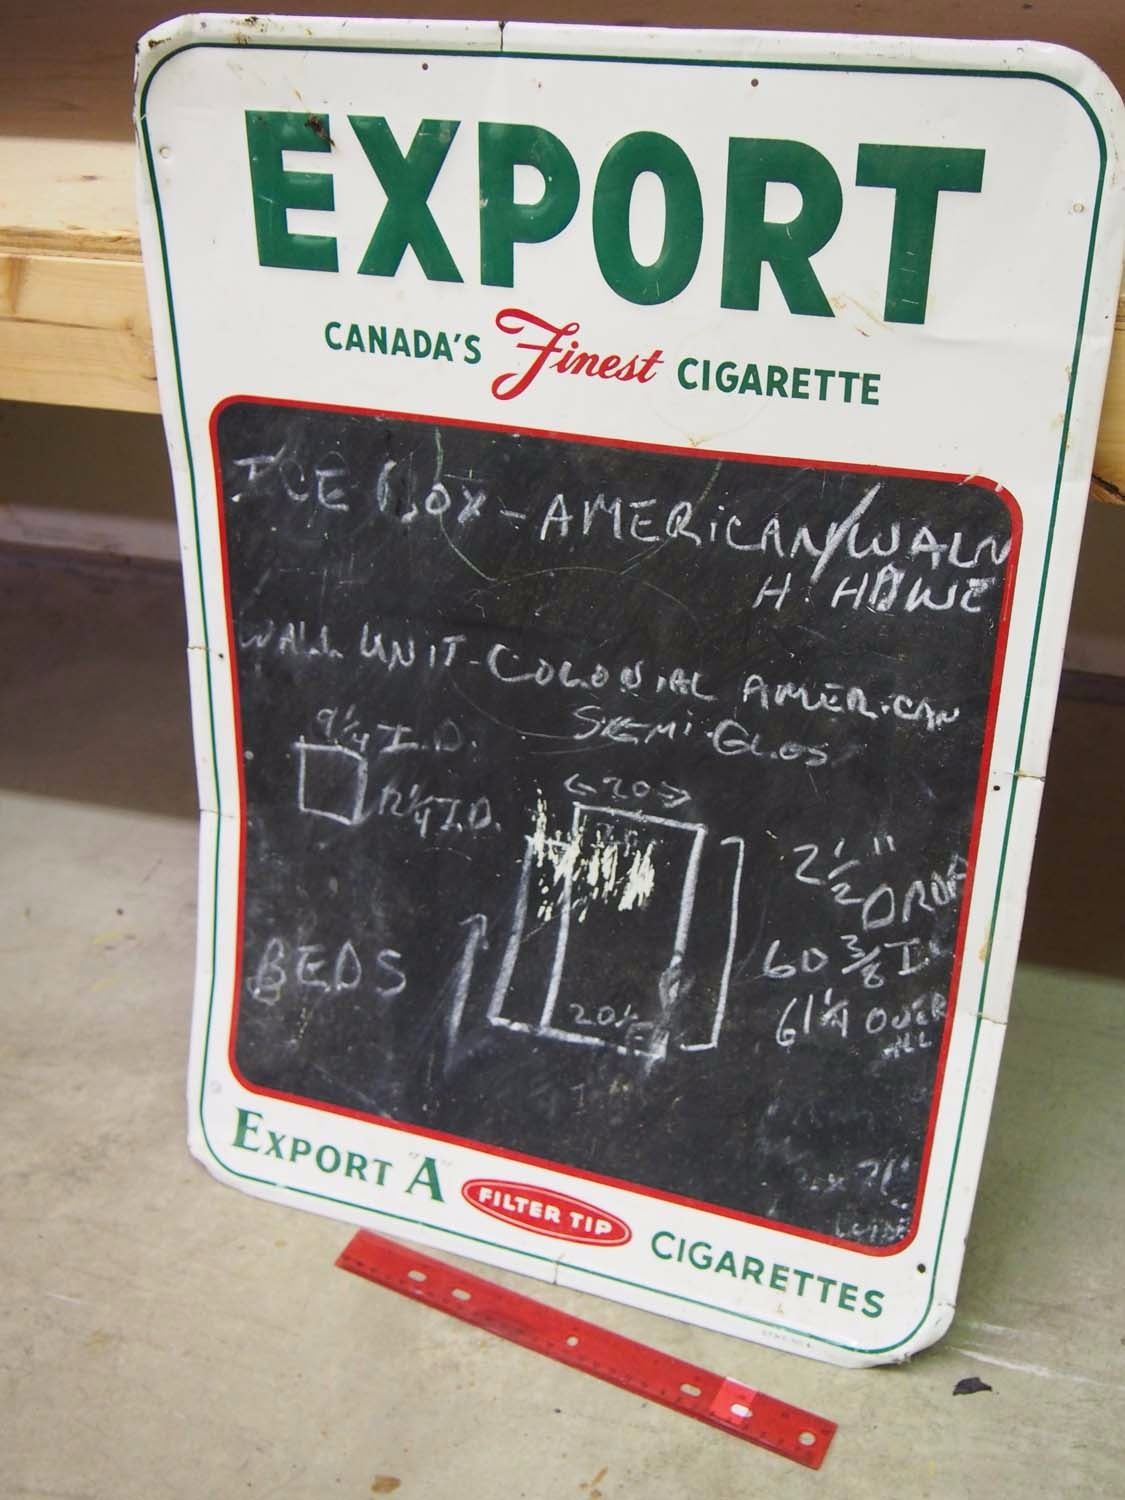 EXPORT
CANADA'S Finest CIGARETTE
ICE BOX - AMERICAN/WALN
H. HOWE
WALL UNIT - COLONIAL AMERICAN
SEMI-GLOS
9 1/4 I.D.
12 1/4 I.D.
<20>
2 1/2" DROP
BEDS
60 3/8
20 1/2
61 1/4 OVER
ALL
EXPORT "A" FILTER TIP CIGARETTES